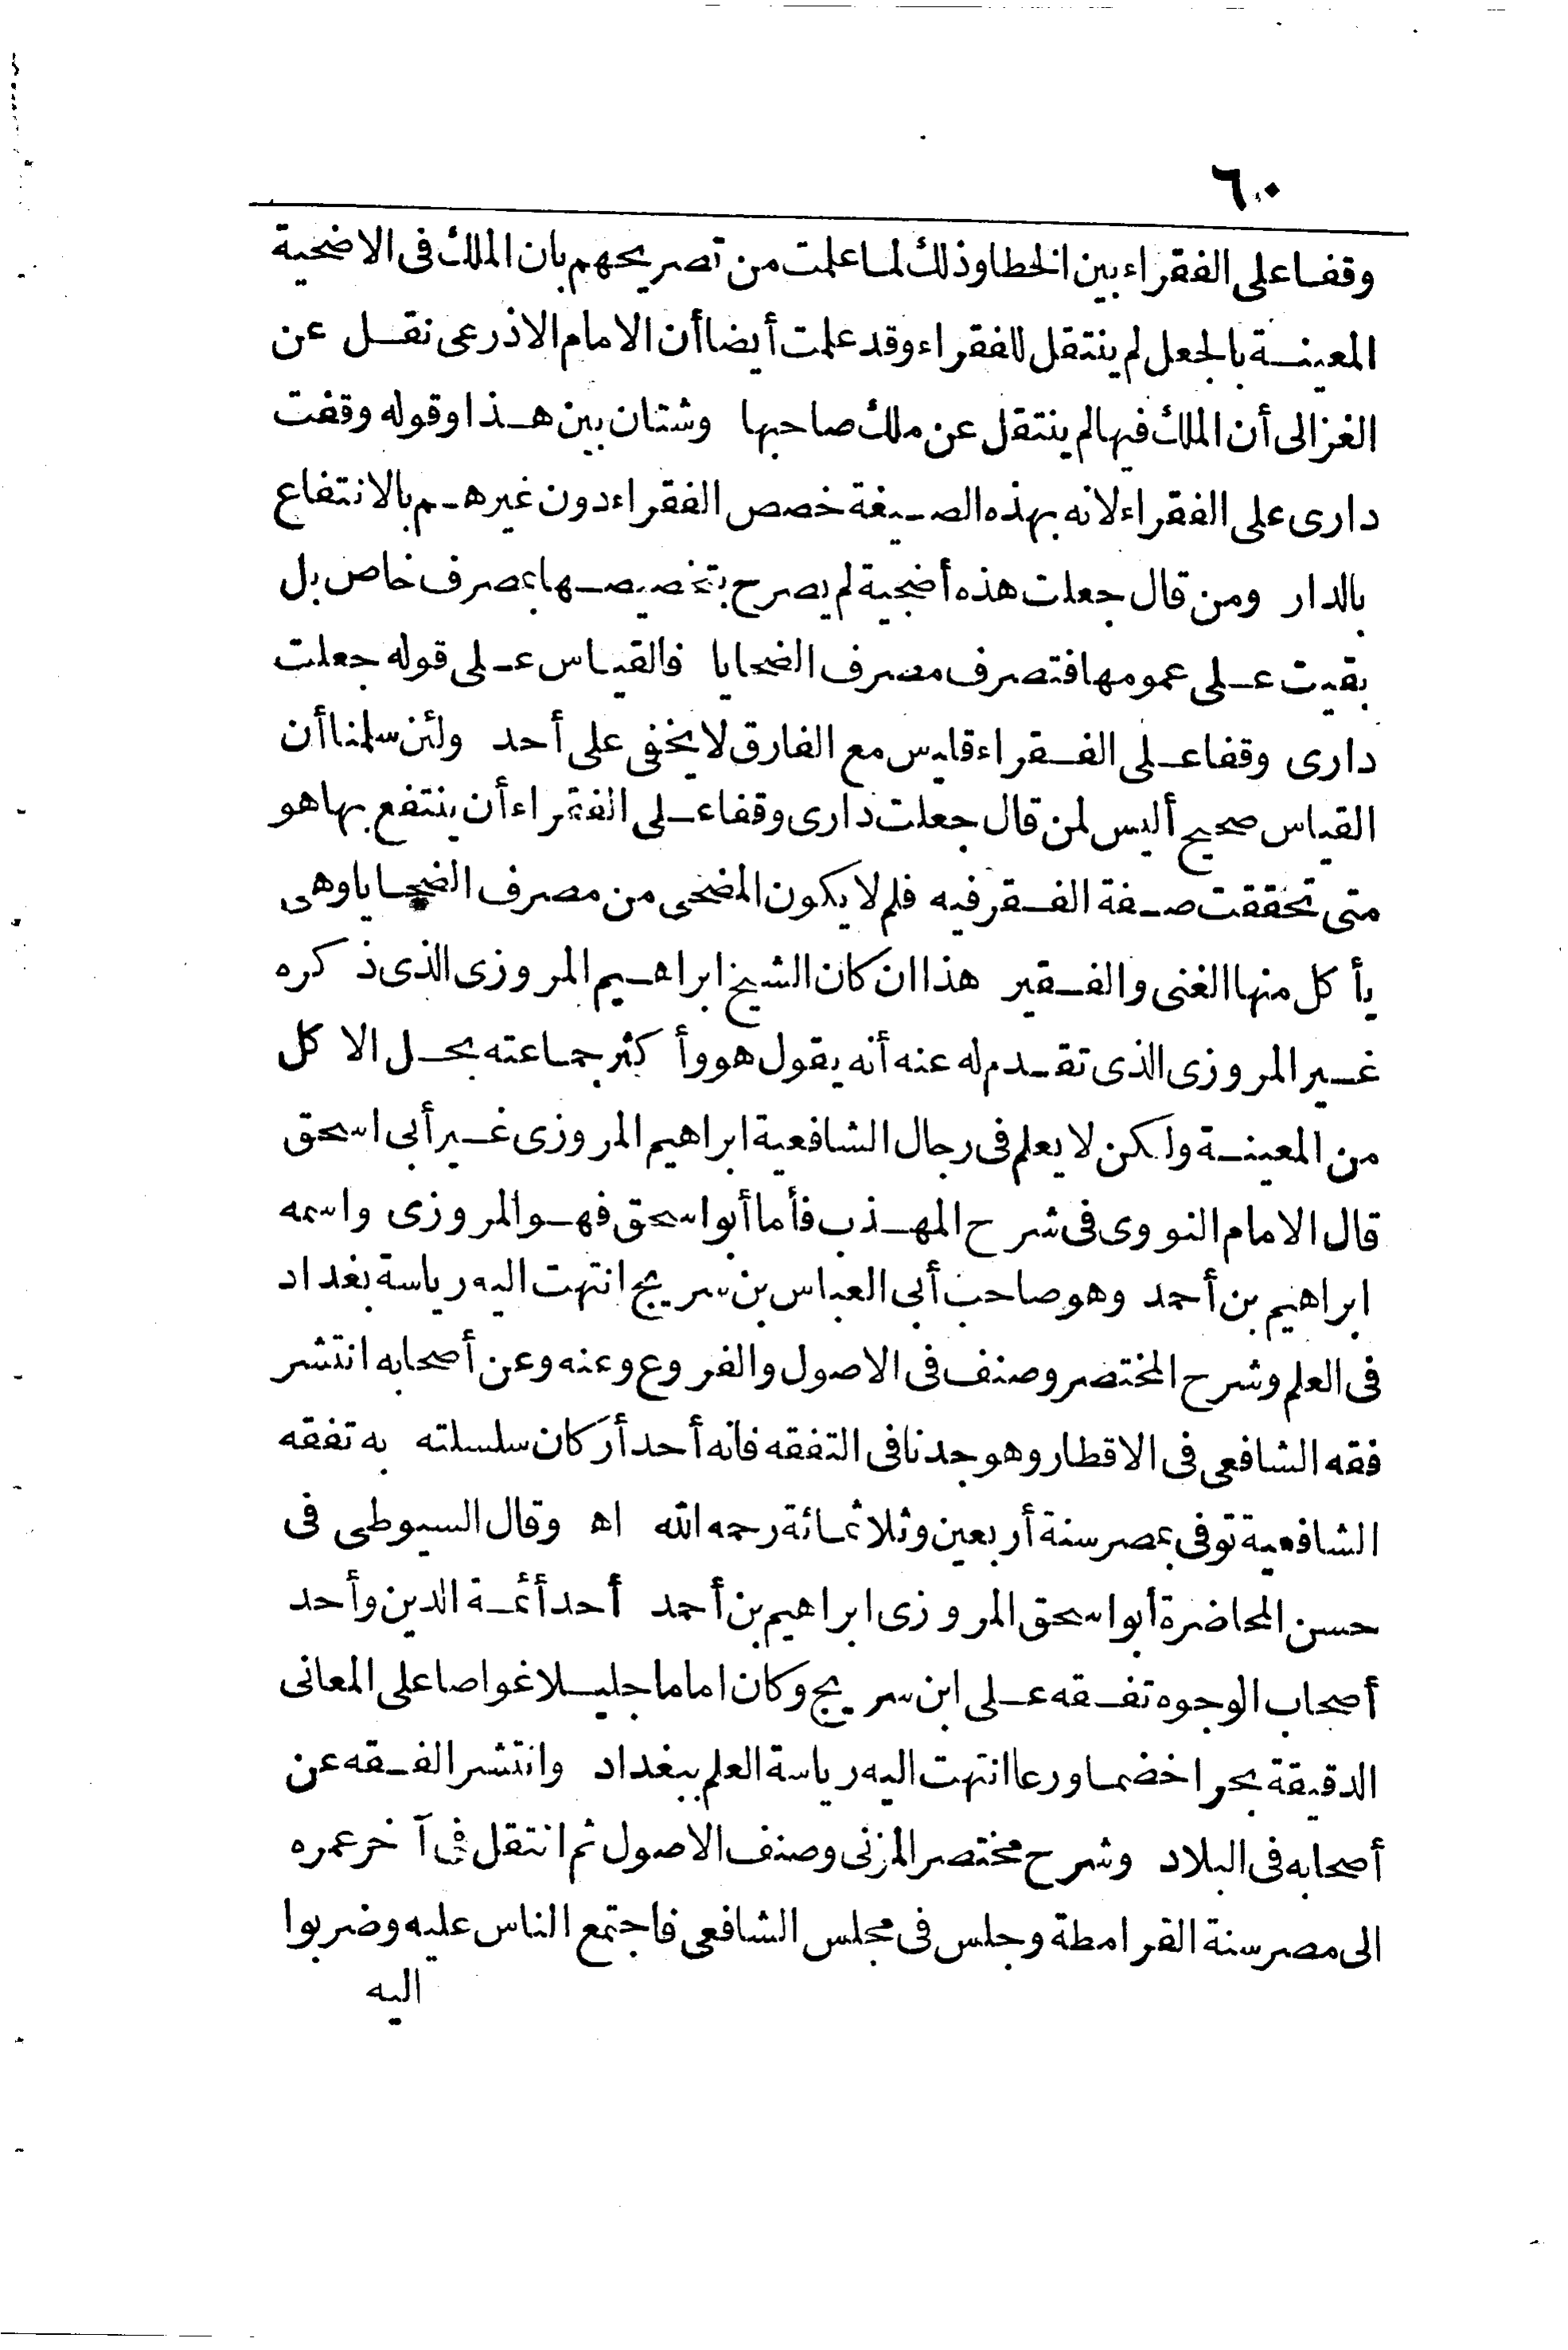 ٦٠
وقفا على الفقراء بين الخطا وذلك لما علمت من تصريحهم بان الملك فى الاضحية
المعينة بالجعل لم ينتقل للفقراء وقد علمت أيضا أن الامام الاذرعى نقل عن
الغزالى أن الملك فيها لم ينتقل عن ملك صاحبها وشتان بين هذا وقوله وقفت
دارى على الفقراء لانه بهذه الصيغة خصص الفقراء دون غيرهم بالانتفاع
بالدار ومن قال جعلت هذه أضحية لم يصرح بتخصيصها بمصرف خاص بل
بقيت على عمومها فتصرف مصرف الضحايا فالقياس على قوله جعلت
دارى وقفا على الفقراء قياس مع الفارق لا يخفى على أحد ولئن سلمنا أن
القياس صحيح أليس لمن قال جعلت دارى وقفا على الفقراء أن ينتفع بها هو
متى تحققت صفة الفقر فيه فلم لا يكون المضحى من مصرف الضحايا وهى
يأكل منها الغنى والفقير هذا ان كان الشيخ ابراهيم المروزى الذى ذكره
غير المروزى الذى تقدم له عنه أنه يقول هو وأكثر جماعته بحل الاكل
من المعينة ولكن لا يعلم فى رجال الشافعية ابراهيم المروزى غير أبى اسحق
قال الامام النووى فى شرح المهذب فأما أبو اسحق فهو المروزى واسمه
ابراهيم بن أحمد وهو صاحب أبى العباس بن سريج انتهت اليه رياسة بغداد
فى العلم وشرح المختصر وصنف فى الاصول والفروع وعنه وعن أصحابه انتشر
فقه الشافعى فى الاقطار وهو جدنا فى التفقه فانه أحد أركان سلسلته به تفقه
الشافعية توفى بمصر سنة أربعين وثلاثمائة رحمه الله اه وقال السيوطى فى
حسن المحاضرة أبو اسحق المروزى ابراهيم بن أحمد أحد أئمة الدين وأحد
أصحاب الوجوه تفقه على ابن سريج وكان اماما جليلا غواصا على المعانى
الدقيقة بحرا خضما ورعا انتهت اليه رياسة العلم ببغداد وانتشر الفقه عن
أصحابه فى البلاد وشرح مختصر المزنى وصنف الاصول ثم انتقل فى آخر عمره
الى مصر سنة القرامطة وجلس فى مجلس الشافعى فاجتمع الناس عليه وضربوا
اليه